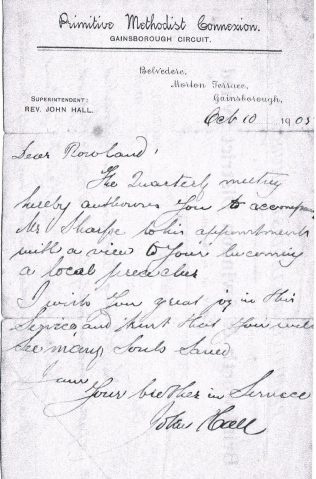 Primitive Methodist Connexion.
GAINSBOROUGH CIRCUIT.
Belvedere,
Morton Terrace,
Gainsborough,
SUPERINTENDENT;
REV. JOHN HALL.
Oct 10 1903
Dear Rowland!
The Quarterly meeting
hereby authorises You to accompany
Mr Sharpe to his appointments
with a view to Your becoming
a local preacher
I wish You great joy in this
Service and trust that You will
See many Souls Saved
I am
Your brother in Service
John Hall